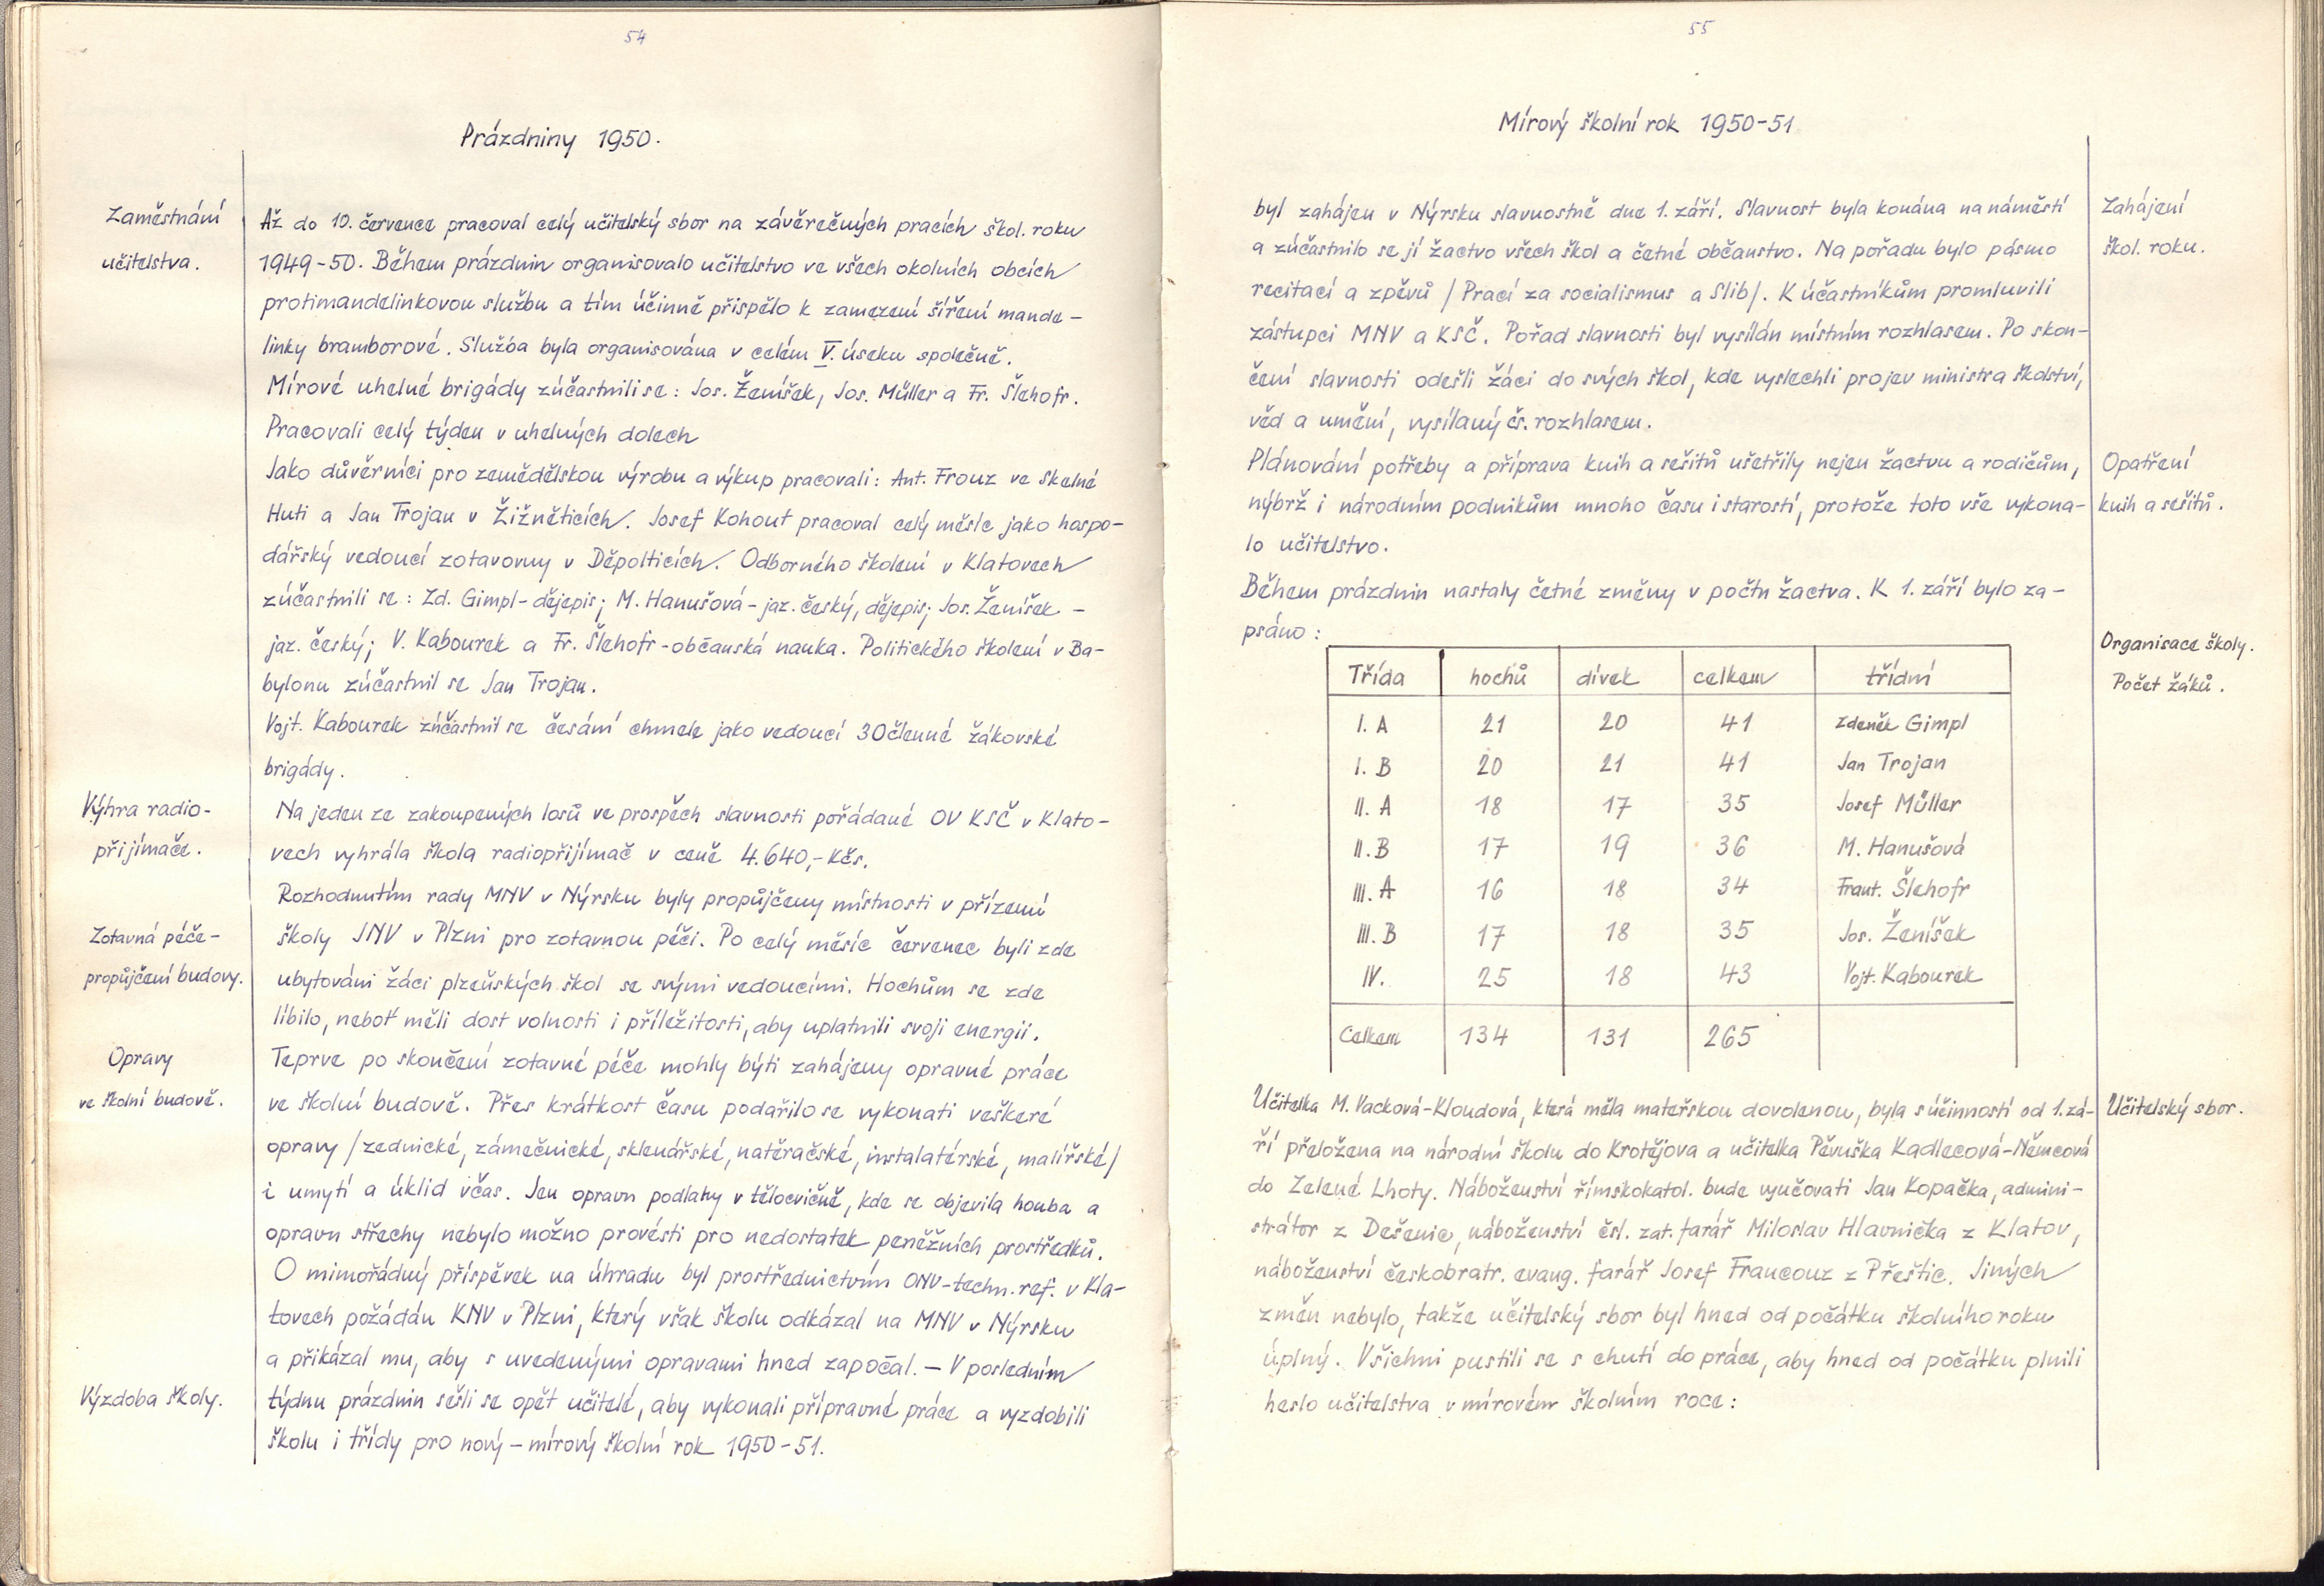 54
Prázdniny 1950.
Zaměstnání
učitelstva.
Až do 10. července pracoval celý učitelský sbor na závěrečných pracích škol. roku
1949-50. Během prázdnin organisovalo učitelstvo ve všech okolních obcích
protimandelinkovou službu a tím účinně přispělo k zamezení šíření mande-
linky bramborové. Služba byla organisována v celém V. úseku společně.
Mírové uhelné brigády zúčastnili se: Jos. Ženíšek, Jos. Müller a Fr. Šlehofr.
Pracovali celý týden v uhelných dolech
Jako důvěrníci pro zemědělskou výrobu a výkup pracovali: Ant. Frouz ve Skelné
Huti a Jan Trojan v Žižněticích. Josef Kohout pracoval celý měsíc jako hospo-
dářský vedoucí zotavovny v Děpolticích. Odborného školení v Klatovech
zúčastnili se: Zd. Gimpl-dějepis; M. Hanušová-jaz. český, dějepis; Jos. Ženíšek -
jaz. český; V. Kabourek a Fr. Šlehofr-občanská nauka. Politického školení v Ba-
bylonu zúčastnil se Jan Trojan.
Vojt. Kabourek zúčastnil se česání chmele jako vedoucí 30členné žákovské
brigády.
Výhra radio-
přijímače.
Na jeden ze zakoupených losů ve prospěch slavnosti pořádané OV KSČ v Klato-
vech vyhrála škola radiopřijímač v ceně 4.640,- Kčs.
Rozhodnutím rady MNV v Nýrsku byly propůjčeny místnosti v přízemí
Zotavná péče-
propůjčení budovy.
školy JNV v Plzni pro zotavnou péči. Po celý měsíc červenec byli zde
ubytováni žáci plzeňských škol se svými vedoucími. Hochům se zde
líbilo, neboť měli dost volnosti i příležitosti, aby uplatnili svoji energii.
Opravy
ve školní budově.
Teprve po skončení zotavné péče mohly býti zahájeny opravné práce
ve školní budově. Přes krátkost času podařilo se vykonati veškeré
opravy /zednické, zámečnické, sklenářské, natěračské, instalatérské, malířské/
i umytí a úklid včas. Jen opravu podlahy v tělocvičně, kde se objevila houba a
opravu střechy nebylo možno provésti pro nedostatek peněžních prostředků.
O mimořádný příspěvek na úhradu byl prostřednictvím ONV-techn. ref. v Kla-
tovech požádán KNV v Plzni, který však školu odkázal na MNV v Nýrsku
a přikázal mu, aby s uvedenými opravami hned započal. - V posledním
Výzdoba školy.
týdnu prázdnin sešli se opět učitelé, aby vykonali přípravné práce a vyzdobili
školu i třídy pro nový - mírový školní rok 1950-51.
55
Mírový školní rok 1950-51
byl zahájen v Nýrsku slavnostně dne 1. září. Slavnost byla konána na náměstí
a zúčastnilo se jí žactvo všech škol a četné občanstvo. Na pořadu bylo pásmo
recitací a zpěvů /Prací za socialismus a Slib/. K účastníkům promluvili
zástupci MNV a KSČ. Pořad slavnosti byl vysílán místním rozhlasem. Po skon-
čení slavnosti odešli žáci do svých škol, kde vyslechli projev ministra školství,
věd a umění, vysílaný čs. rozhlasem.
Zahájení
škol. roku.
Plánování potřeby a příprava knih a sešitů ušetřily nejen žactvu a rodičům,
nýbrž i národním podnikům mnoho času i starostí, protože toto vše vykona-
lo učitelstvo.
Opatření
knih a sešitů.
Během prázdnin nastaly četné změny v počtu žactva. K 1. září bylo za-
psáno:
Organisace školy.
Počet žáků.
Třída hochů dívek celkem třídní
I. A 21 20 41 Zdeněk Gimpl
I. B 20 21 41 Jan Trojan
II. A 18 17 35 Josef Müller
II. B 17 19 36 M. Hanušová
III. A 16 18 34 Frant. Šlehofr
III. B 17 18 35 Jos. Ženíšek
IV. 25 18 43 Vojt. Kabourek
Celkem 134 131 265
Učitelka M. Vacková-Kloudová, která měla mateřskou dovolenou, byla s účinností od 1. zá-
ří přeložena na národní školu do Krotějova a učitelka Pěvuška Kadlecová-Němcová
do Zelené Lhoty. Náboženství římskokatol. bude vyučovati Jan Kopačka, admini-
strátor z Dešenic, náboženství čsl. zat. farář Miloslav Hlavnička z Klatov,
náboženství českobratr. evang. farář Josef Francouz z Přeštic. Jiných
změn nebylo, takže učitelský sbor byl hned od počátku školního roku
úplný. Všichni pustili se s chutí do práce, aby hned od počátku plnili
heslo učitelstva v mírovém školním roce:
Učitelský sbor.